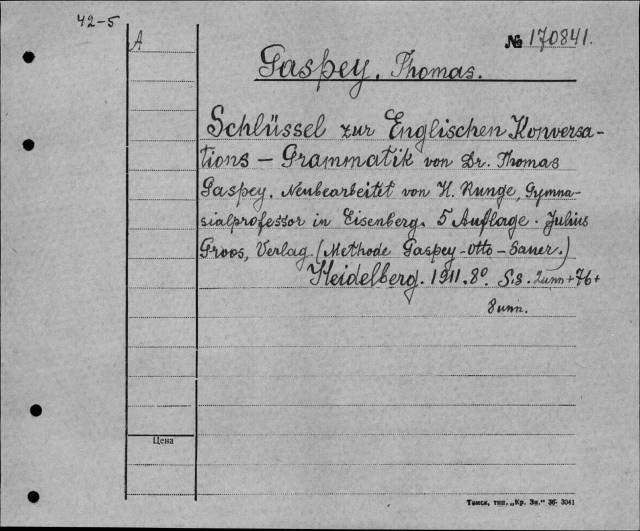 42-5
A
№ 170841.
Gaspey, Thomas.
Schlüssel zur Englischen Konversa-
tions - Grammatik von Dr. Thomas
Gaspey. Neubearbeitet von H. Runge, Gymna-
sialprofessor in Eisenberg. 5 Auflage. Julius
Groos, Verlag. (Methode Gaspey-Otto-Sauer.)
Heidelberg. 1911. 8°. S.s. 2unn + 76 +
8 unn.
Цена
Томск, тип. „Кр. Зн." 36- 3041